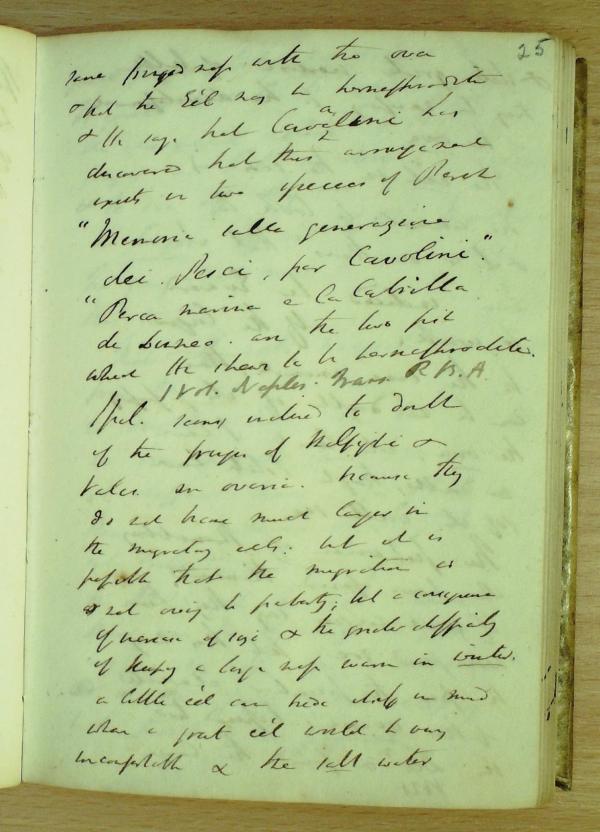 25
same fringed mass with the ova
& that the Eel may be hermaphrodite
& he says that Cavolini has
discovered that this arrangement
exists in two species of Perch
"Memoria sulla generazione
dei Pesci, par Cavolini."
"Perca marina e La Cabrilla
de Linneo. are the two fish
which he shews to be hermaphrodite.
1 Vol. Naples.
seems inclined to doubt
of the fringes of &
being ovaria. because they
do not become much larger in
the migrating eels: but it is
possible that the migration is
not owing to puberty; but a consequence
of increase of size & the greater difficulty
of keeping a large mass warm in winter.
a little eel can hide itself in mud
when a great eel would be very
uncomfortable & the salt water